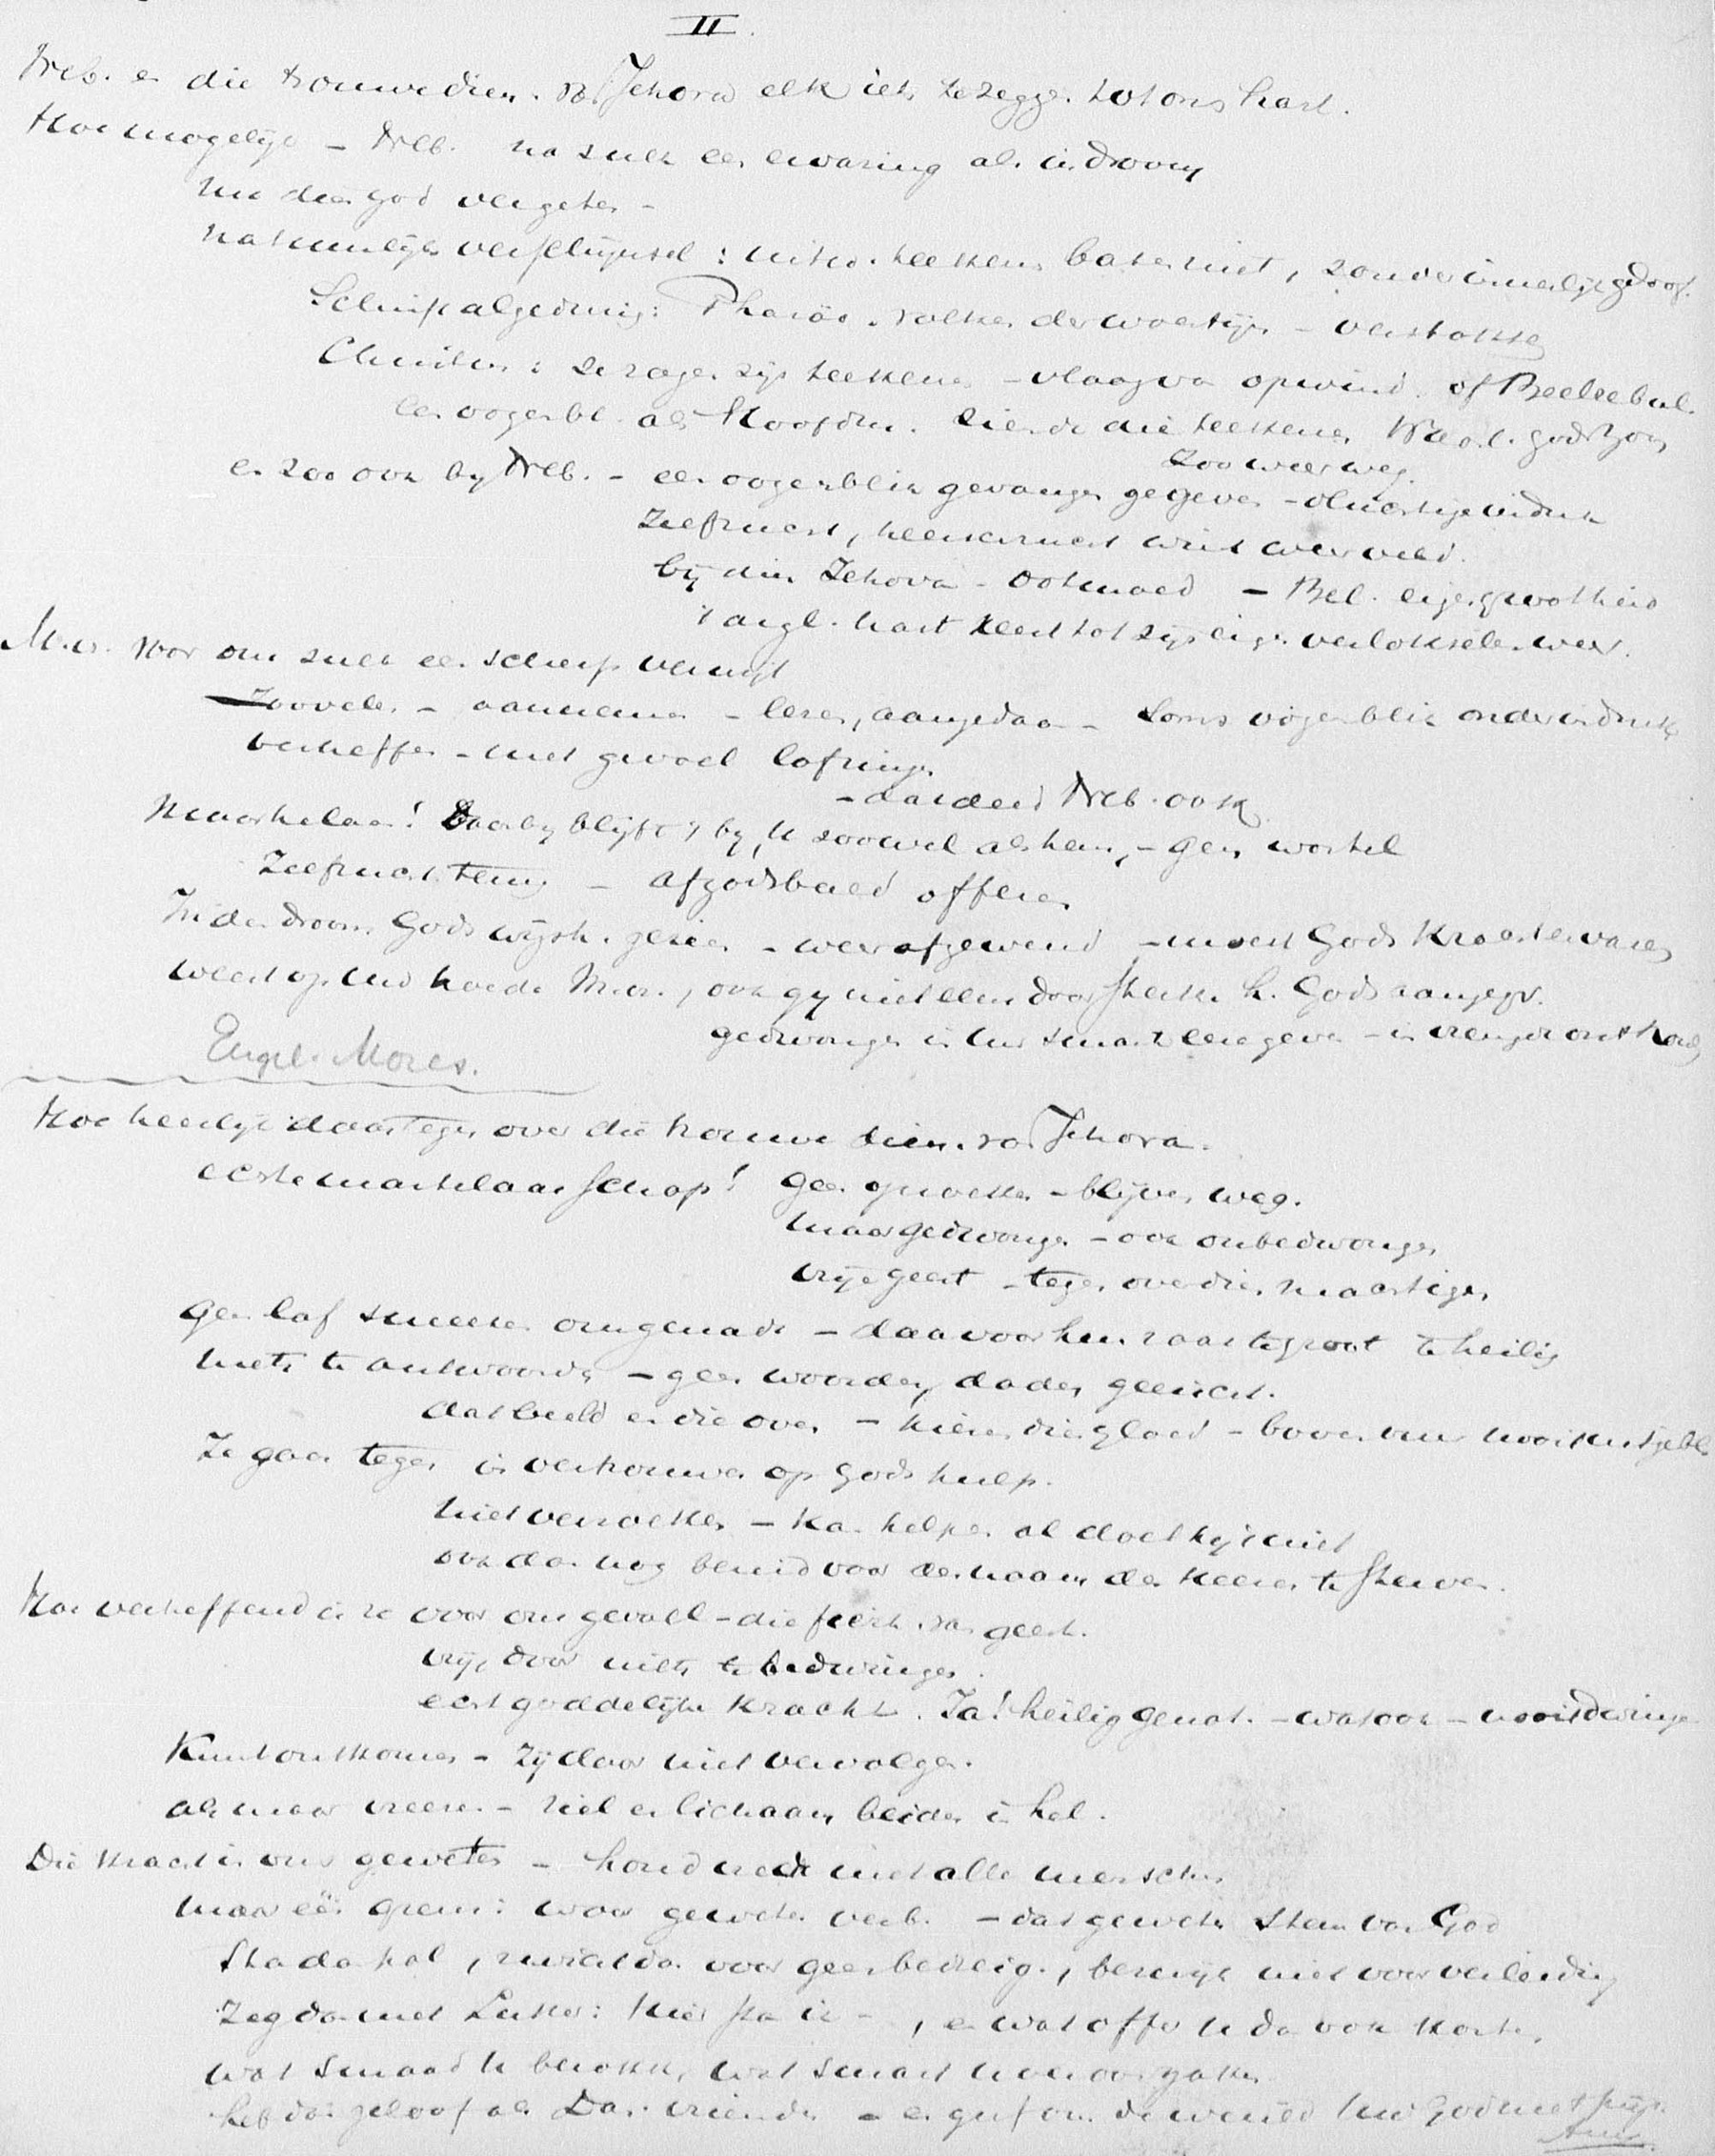 II.
Neb. en die trouwe dien. v. Jehova elk iets te zegge. tot ons hart.
Hoe mogelijk - Neb. na zulk een ervaring als in droom
nu dien God vergeten -
natuurlijk verschijnsel: teekens baten niet, zonder innerlijk geloof.
Schrift algedurig: Pharäo. volk der woestijn - verstokte
Christus: ze zagen zijn teekene - of Beelzebul.
een oogenbl. als Hoofdm. ziende die teekenen, Gods Zoon
zoo weer weg.
en zoo ook by Neb. - een oogenblik gevangen gegeven - vluchtige indruk
Zelfzucht, heerschzucht wint weer veld.
bij dien Jehova - ootmoed - Bel. eigen grootheid
't argl. hart keert tot zijn eigen verloksele weer.
M. voor ons zulk een scherp verwijt
Zoovele - aannemen - lezen, aangedaan - soms oogenblik onder indruk
verheffen - met gevoel lofzingen
- dat deed Neb. ook
Maar helaas! Daarby blijft 't by U zoowel als hem, - geen wortel
Zelfzucht tem - afgodsbeeld offeren
In den droom Gods wijsh. gezien - weer afgewend - moest Gods kracht ervaren
weest op uw hoede M., ook gy niet eens door sterke h. Gods aangegr.
gedwongen in uw smart eere geven - in vreugde onthoud
Engel. Mozes.
Hoe heerlijk daartegen over die trouwe dien. van Jehova.
echte martelaarschap! geen opzoeken - blijven weg.
maar gedwongen - ook onbedwongen
vrije geest - tegen over dien machtigen
Geen laf smeeken om genade - daarvoor hun zaak te groot te heilig
niets te antwoorden - geen woorden, daden geeischt.
dat beeld en die oven - kiezen dien gloed - boven
Ze gaan tegen in vertrouwen op Gods hulp.
niet verzoeken - kan helpen al doet hij 't niet
ook dan nog bereid voor den naam des Heeren te sterven.
Hoe verheffend is ze voor ons gevoel - die fierh. van geest.
vrij, door niets te bedwingen.
echt goddelijke kracht. Ja! heilig genot. - wat ook - nooit dwingen
Kunt ontkomen - zij daar niet vervolgen.
als maar vreezen - ziel en lichaam beiden in hel.
Die kracht is ons geweten - houd vrede met alle menschen
maar één grens: waar geweten verb. - dat geweten stem van God
Sta dan pal, zwicht dan voor geen bedreig., bezwijk niet voor verleiding
Zeg dan met Luther: hier sta ik -, en wat offer U dan ook koste,
wat smaad U berokke, wat smart U veroorzake
heb dan geloof als Dan. vrienden - en geef om de wereld Uw God niet prijs
Amen